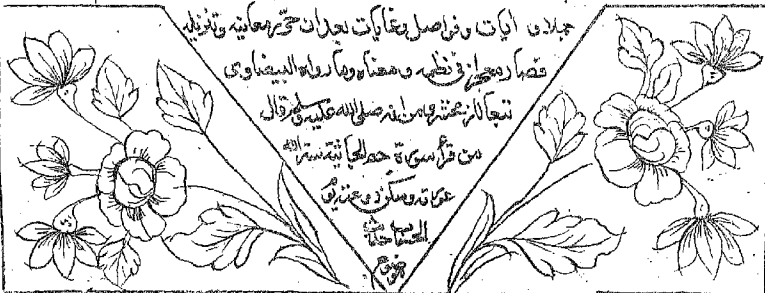 ايات وفواصل وغايات بعد ان معانيه
فصار معجزا في نظمه ومعناه وما رواه البيضاوى
تبعا للزمخشرى من انه صلى الله عليه وسلم قال
من قرأ سورة حم الجاثية ستر الله
عورته وسكن روعته يوم
الحساب حديث
موضوع